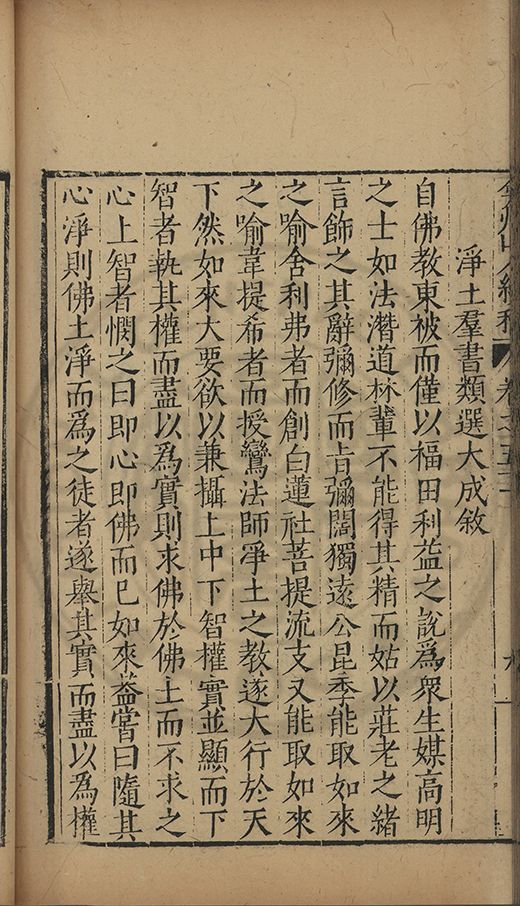 淨土羣書類選大成敘
自佛教東被而僅以福田利益之說爲衆生媒高明
之士如法潛道林輩不能得其精而姑以莊老之緒
言飾之其辭彌修而旨彌闊獨遠公昆季能取如來
之喻舍利弗者而創白蓮社菩提流支又能取如來
之喻韋提希者而授鸞法師淨土之教遂大行於天
下然如來大要欲以兼攝上中下智權實並顯而下
智者執其權而盡以為實則求佛於佛土而不求之
心上智者憫之曰即心即佛而已如來葢嘗曰隨其
心淨則佛土淨而爲之徒者遂舉其實而盡以為權